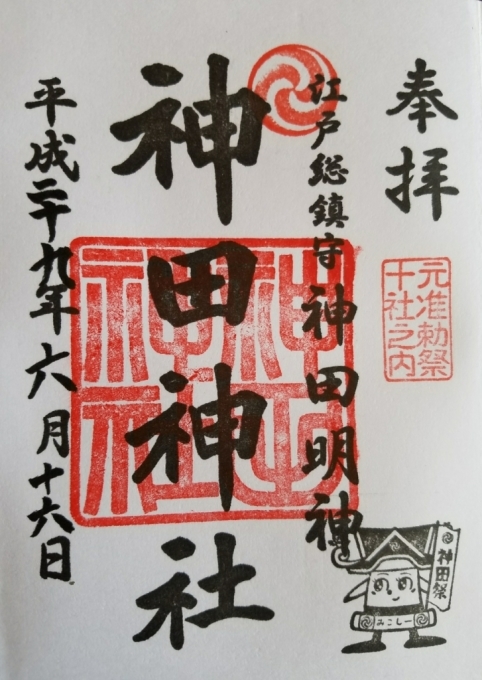 奉拝
元准勅祭
十社之内
江戸総鎮守 神田明神
神田神社
神田神社
平成二十九年 六月十六日
神田祭
みこしー